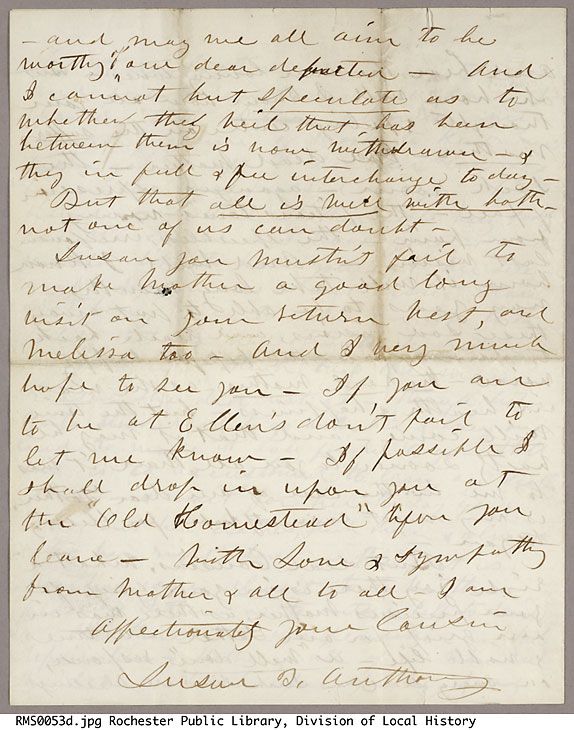 - and may we all aim to be
worthy our dear departed - And
I cannot but speculate as to
whether the veil that has been
between them is now withdrawn - &
they in full & free interchange today -
But that all is well with both -
not one of us can doubt -
Susan you mustn't fail to
make Mother a good long
visit on your return west, and
Melissa too - And I very much
hope to see you - If you are
to be at Ellen's don't fail to
let me know - If possible I
shall drop in upon you at
the "Old Homestead" before you
leave - With Love & Sympathy
from Mother & all to all - I am
Affectionately your Cousin
Susan B. Anthony
RMS0053d.jpg Rochester Public Library, Division of Local History